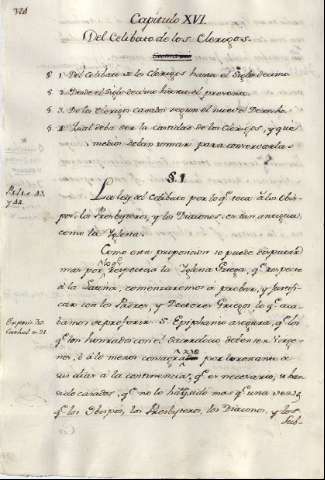 Capitulo XVI.
Del Celibato de los Clerigos.
§ 1 Del Celibato de los Clerigos hasta el Siglo decimo
§ 2 Desde el Siglo decimo hasta el presente
§ 3. De los Clerigos casados segun el nuevo Derecho
§ 4 Qual deba ser la castidad de los Clerigos, y que
medios deban tomar para conservarla.
§ 1
La ley del Celibato por lo q.e toca à los Obis-
pos, los Presbyteros, y los Diaconos es tan antigua
como la Yglesia.
Como esta proposicion se puede disputar
mas por lo q.e respecta à la Yglesia Griega, q.e respecto
à la Latina, comenzaremos à probar, y justifi-
car con los Padres, y Doctores Griegos lo q.e aca-
bamos de proferir. S. Epiphanio asegura, q.e los
q.e son honrados con el Sacerdocio deben ser Virge-
nes, ò à lo menos consagrados por lo restante de
sus dias à la continencia, q.e es necesario, si han
sido casados, q.e no lo haya sido mas q.e una vez, y
q.e los Obispos, los Presbyteros, los Diaconos, y los
Sub-